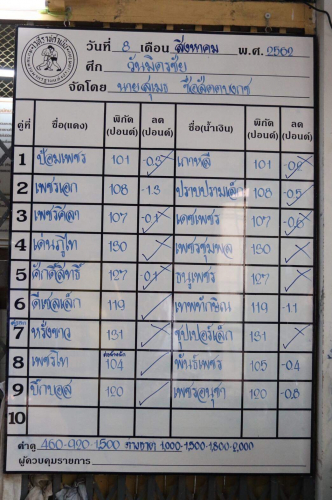 วันที่ 8 เดือน สิงหาคม พ.ศ. 2562
ศึก วันมิตรชัย
จัดโดย นายสุเมธ
คู่ที่ ชื่อ(แดง) พิกัด (ปอนด์) ลด (ปอนด์) ชื่อ(น้ำเงิน) พิกัด (ปอนด์) ลด (ปอนด์)
1 ป้อมเพชร 101 -0.5 เกาหลี 101
2 เพชรเอก 108 -1.3 ปราบปรามเล็ก 108 -0.5
3 เพชรศิลา 107 -0.1 เดชเพชร 107 -0.6
4 เด่นภูไท 130 เพชรชุมพล 130
5 ศักดิ์สิทธิ์ 127 -0.1 ธนูเพชร 127
6 ดีเซลเล็ก 119 เทพทักษิณ 119 -1.1
7 หรั่งขาว 131 ซุปเปอร์เล็ก 131
8 เพชรไท 104 พันธ์เพชร 105 -0.4
9 บิ๊กบอส 120 เพชรอนุชา 120 -0.8
10
ค่าดู 460-920-1,500 1,000-1,500-1,800-2,000
ผู้ควบคุมรายการ